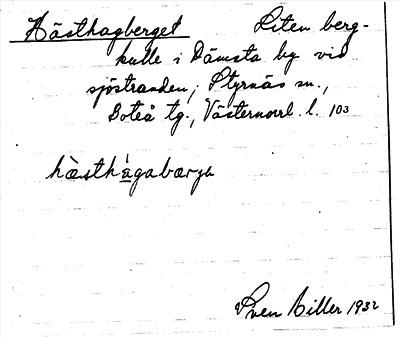 Hästhagberget Liten berg-
kulle i Dämsta by vid
sjöstranden, Styrnäs sn.,
Boteå tg., Västernorrl. l. 103
hästhágabærga
Sven Biller 1932